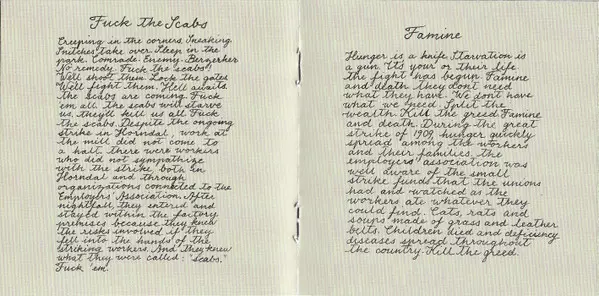 Fuck the Scabs
Creeping in the corners. Sneaking
Snitches take over. Sleep in the
park. Comrade. Enemy. Berzerker
No remedy. Fuck the scabs!
We'll shoot them. Lock the gates
We'll fight them. Hell awaits
the scabs are coming. Fuck
'em all. the scabs will starve
us, they'll kill us all. Fuck
the scabs. Despite the ongoing
strike in Horndal, work at
the mill did not come to
a halt. there were workers
who did not sympathize
with the strike, both in
Horndal and through
organizations connected to the
Employers' Association. After
nightfall, they entered and
stayed within the factory
premises because they knew
the risks involved if they
fell into the hands of the
striking workers. And they knew
what they were called: "scabs."
Fuck 'em.
Famine
Hunger is a knife. Starvation is
a gun. It's your or their life
the fight has begun. Famine
and death. they don't need
what they have. We don't have
what we need. Split the
wealth. Kill the greed. Famine
and death. During the great
strike of 1909, hunger quickly
spread among the workers
and their families. the
employers' association was
well aware of the small
strike funds that the unions
had and watched as the
workers ate whatever they
could find. Cats, rats and
soups made of grass and leather
belts. Children died and deficiency
diseases spread throughout
the country. Kill the greed.